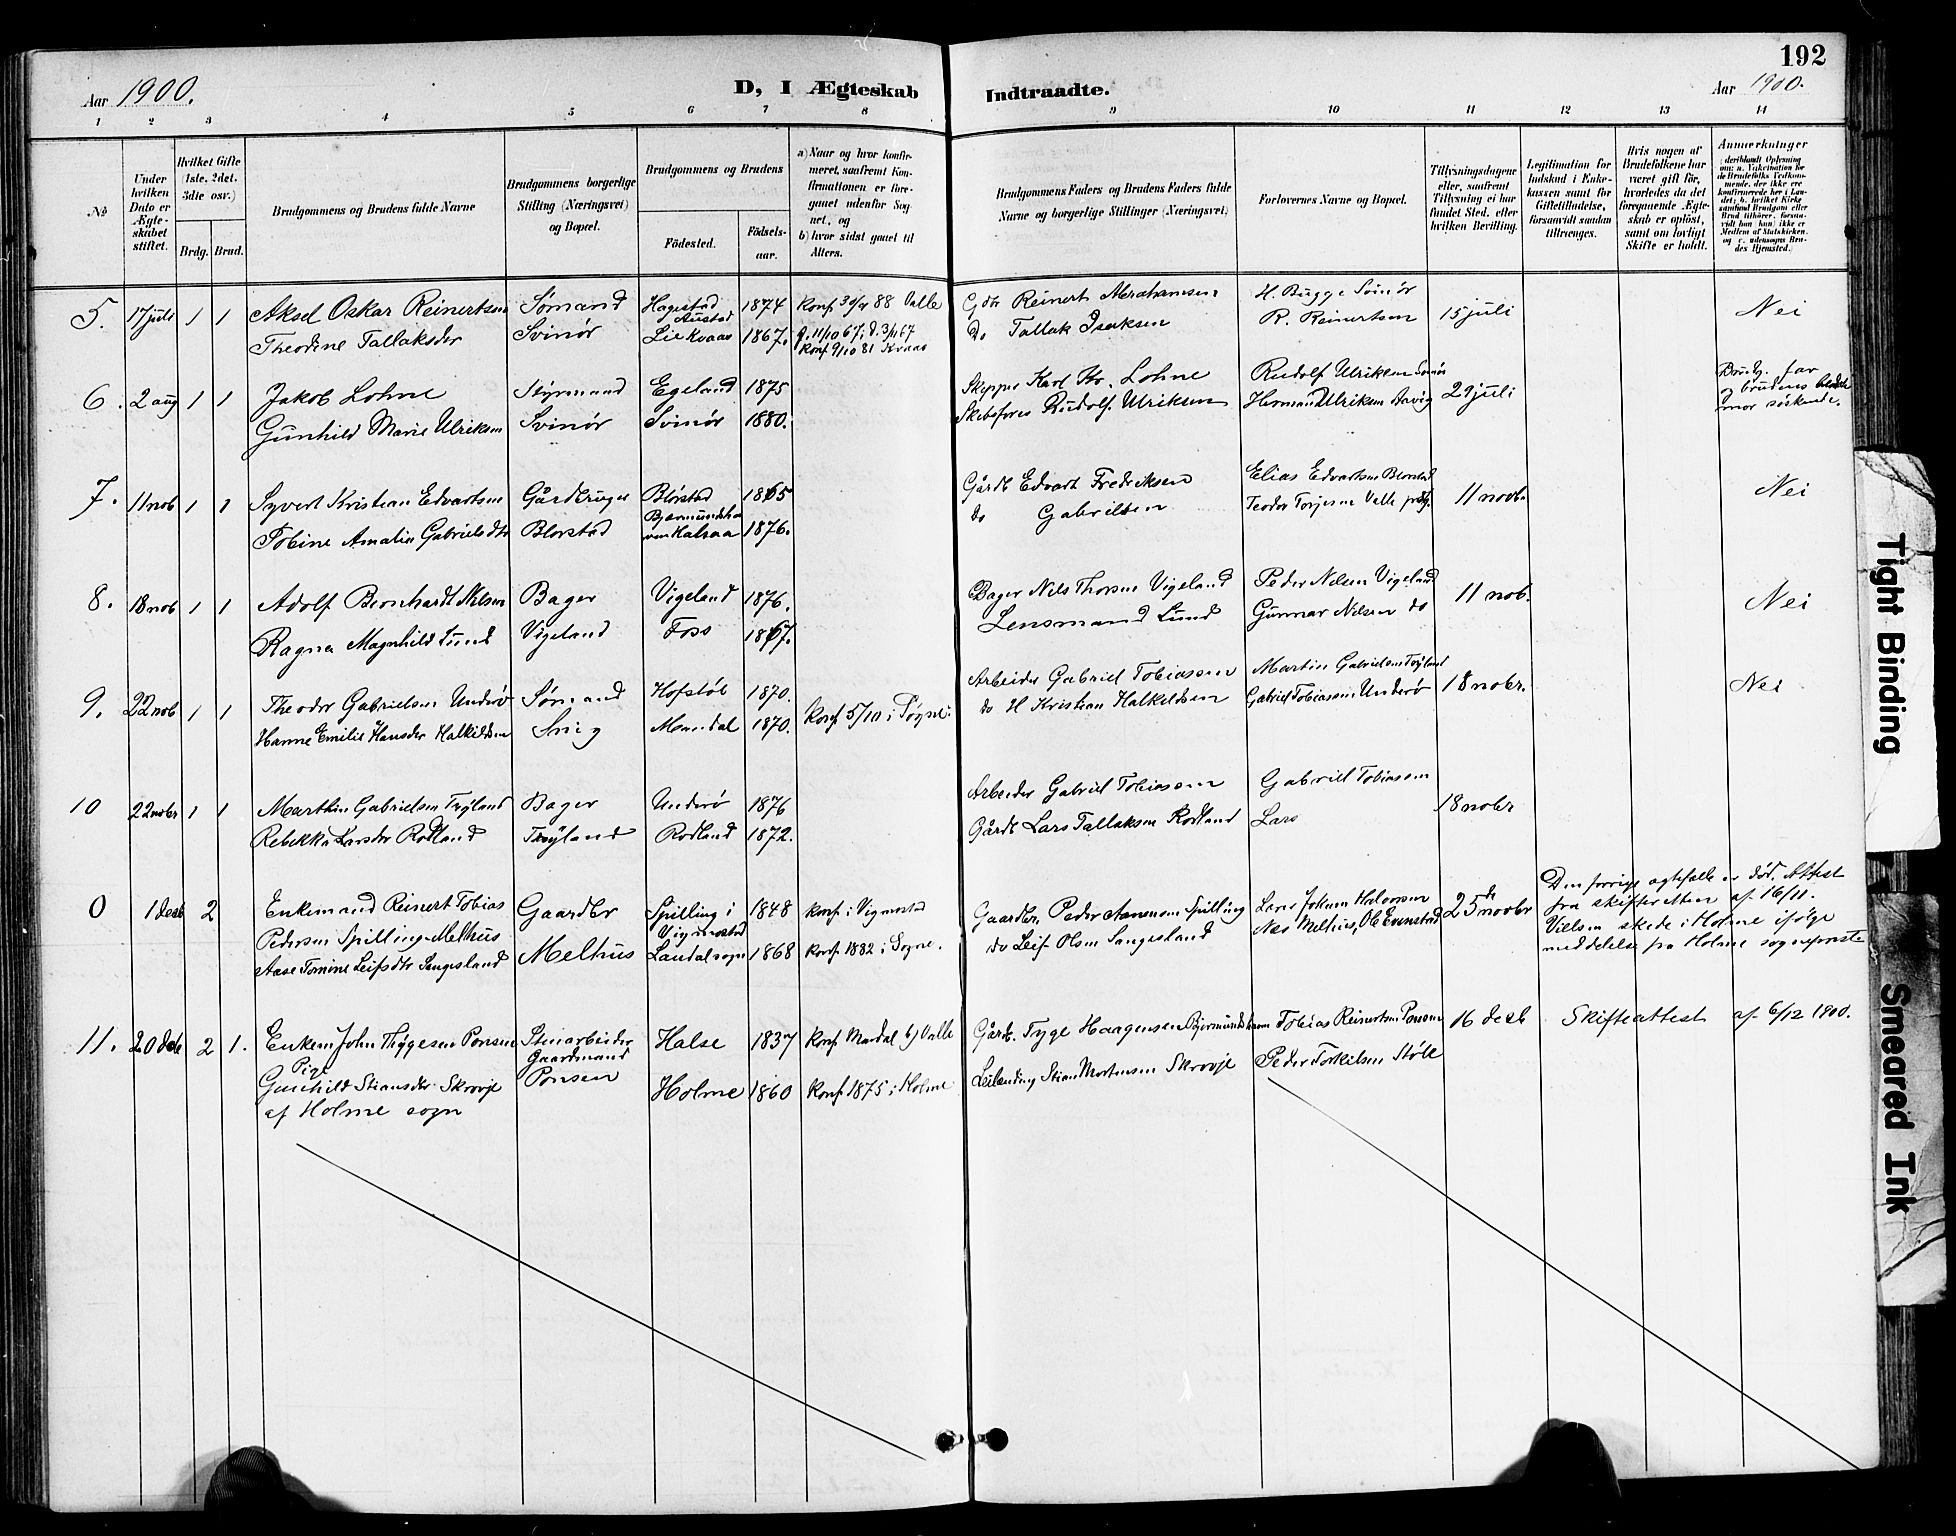 192
Aar 1900.
D, I Ægteskab Indtraadte.
Aar 1900.
1 2 3 4 5 6 7 8 9 10 11 12 13 14
No
Under hvilken Dato er Ægteskabet stiftet.
Hvilket Gifte (1ste. 2det. 3die osv.)
Brdg. Brud.
Brudgommens og Brudens fulde Navne
Brudgommens borgerlige Stilling (Næringsvei) og Bopæl.
Brudgommens og Brudens
Födested. Födsels-aar.
a) Naar og hvor konfirmeret, saafremt Konfirmationen er foregaaet udenfor Sognet, og
b) hvor sidst gaaet til Alters.
Brudgommens Faders og Brudens Faders fulde Navne og borgerlige Stillinger (Næringsvei)
Forlovernes Navne og Bopæl.
Tillysningsdagene eller, saafremt Tillysning ei har fundet Sted, efter hvilken Bevilling.
Legitimation for Indskud i Enkekassen samt for Giftetilladelse, forsaavidt saadan tiltrænges.
Hvis nogen af Brudefolkene har været gift för, hvorledes da det foregaaende Ægteskab er oplöst, samt om lovligt Skifte er holdt.
Anmerkninger
5. 17 juli 1 1 Aksel Oskar Reinertsen Sømand Hagestad 1874 Konf 30/9 88 Valle Gdbr Reinert Abrahamsen H. Bugge Svinör 15 juli Nei
Theodine Tallaksdr Svinör Lie Kvaas 1867. Konf 9/10 81 Kvaas Do Tallak Isaksen R. Reinertsen
6. 2 aug 1 1 Jakob Lohne Styrmand Egeland 1875 Skipper Karl Lohne Rudolf Ulriksen Svinör 29 juli Brudg. far
Gunhild Marie Ulriksen Svinör Svinör 1880. Skibsfører Rudolf Ulriksen Herman Ulriksen og brudens
mor söskende.
7. 11 nob 1 1 Syvert Kristian Edvartsen Gårdbruger Blørstad 1865 Gårdb Edvart Fredriksen Elias Edvartsen Blørstad 11 novb. Nei
Tobine Amalie Gabrielsdtr Blørstad 1876. do Gabrielsen Teodor Torjesen Valle
8. 18 nob 1 1 Adolf Bernhardt Nilsen Bager Vigeland 1876. Bager Nils Thorsen Vigeland Peder Nilsen Vigeland 11 nob. Nei
Ragna Magnhild Lund Vigeland Foss 1867. Lensmand Lund Gunnar Nilsen do
9. 22 nob 1 1 Theodor Gabrielsen Underö Sømand Hofstøl 1870. Arbeider Gabriel Tobiassen Martin Gabrielsen Tryland 18 nobr. Nei
Hanne Emilie Hansdr Halkildsen Snig Mandal 1870. Konf 5/10 i Søgne. do H Kristian Halkeldsen Gabriel Tobiassen Underö
10 22 nobr 1 1 Marthin Gabrielsen Tryland Bager Underö 1876 Arbeider Gabriel Tobiassen Gabriel Tobiassen 18 nobr
Rebekka Larsdr Rodland Tryland Rodland 1872. Gårdb Lars Tallaksen Rodland Lars
0 1 desb 2 Enkemand Reinert Tobias Gaardbr Spilling i 1848 Konf i Vigmostad Gaardbr, Peder Aanensen Spilling Lars Jokum Halvorsen 25de novbr Den forrige ægtefælle er död. Attest
Pedersen Spilling-Melhus Vigmostad fra skifteretten af 16/11.
Aase Tomine Leifsdtr Sangesland Melhus Laudal sogn 1868 Konf 1882 i Sogne. do Leif Olsen Sangesland Melhus, Ole Vielsen skede i Holme ifølge
meddelelse fra Holme sogneprest
11. 20 deb 2 1. Enkem John Thygesen Ponsen Stenarbeider Halse 1837 Konf Mandal b) Valle Gårdb. Tyge Haagensen Tobias Reinertsen Ponsen 16 decb Skifteattest af 6/12 1900.
Pige Gaardmand
Gunhild Stiansdr Skrovje Ponsen Holme 1860 Konf 1875 i Holme Leilending Stian Mortensen Skrovje Peder Torkilsen Støle
af Holme sogn
Tight Binding
Smeared Ink